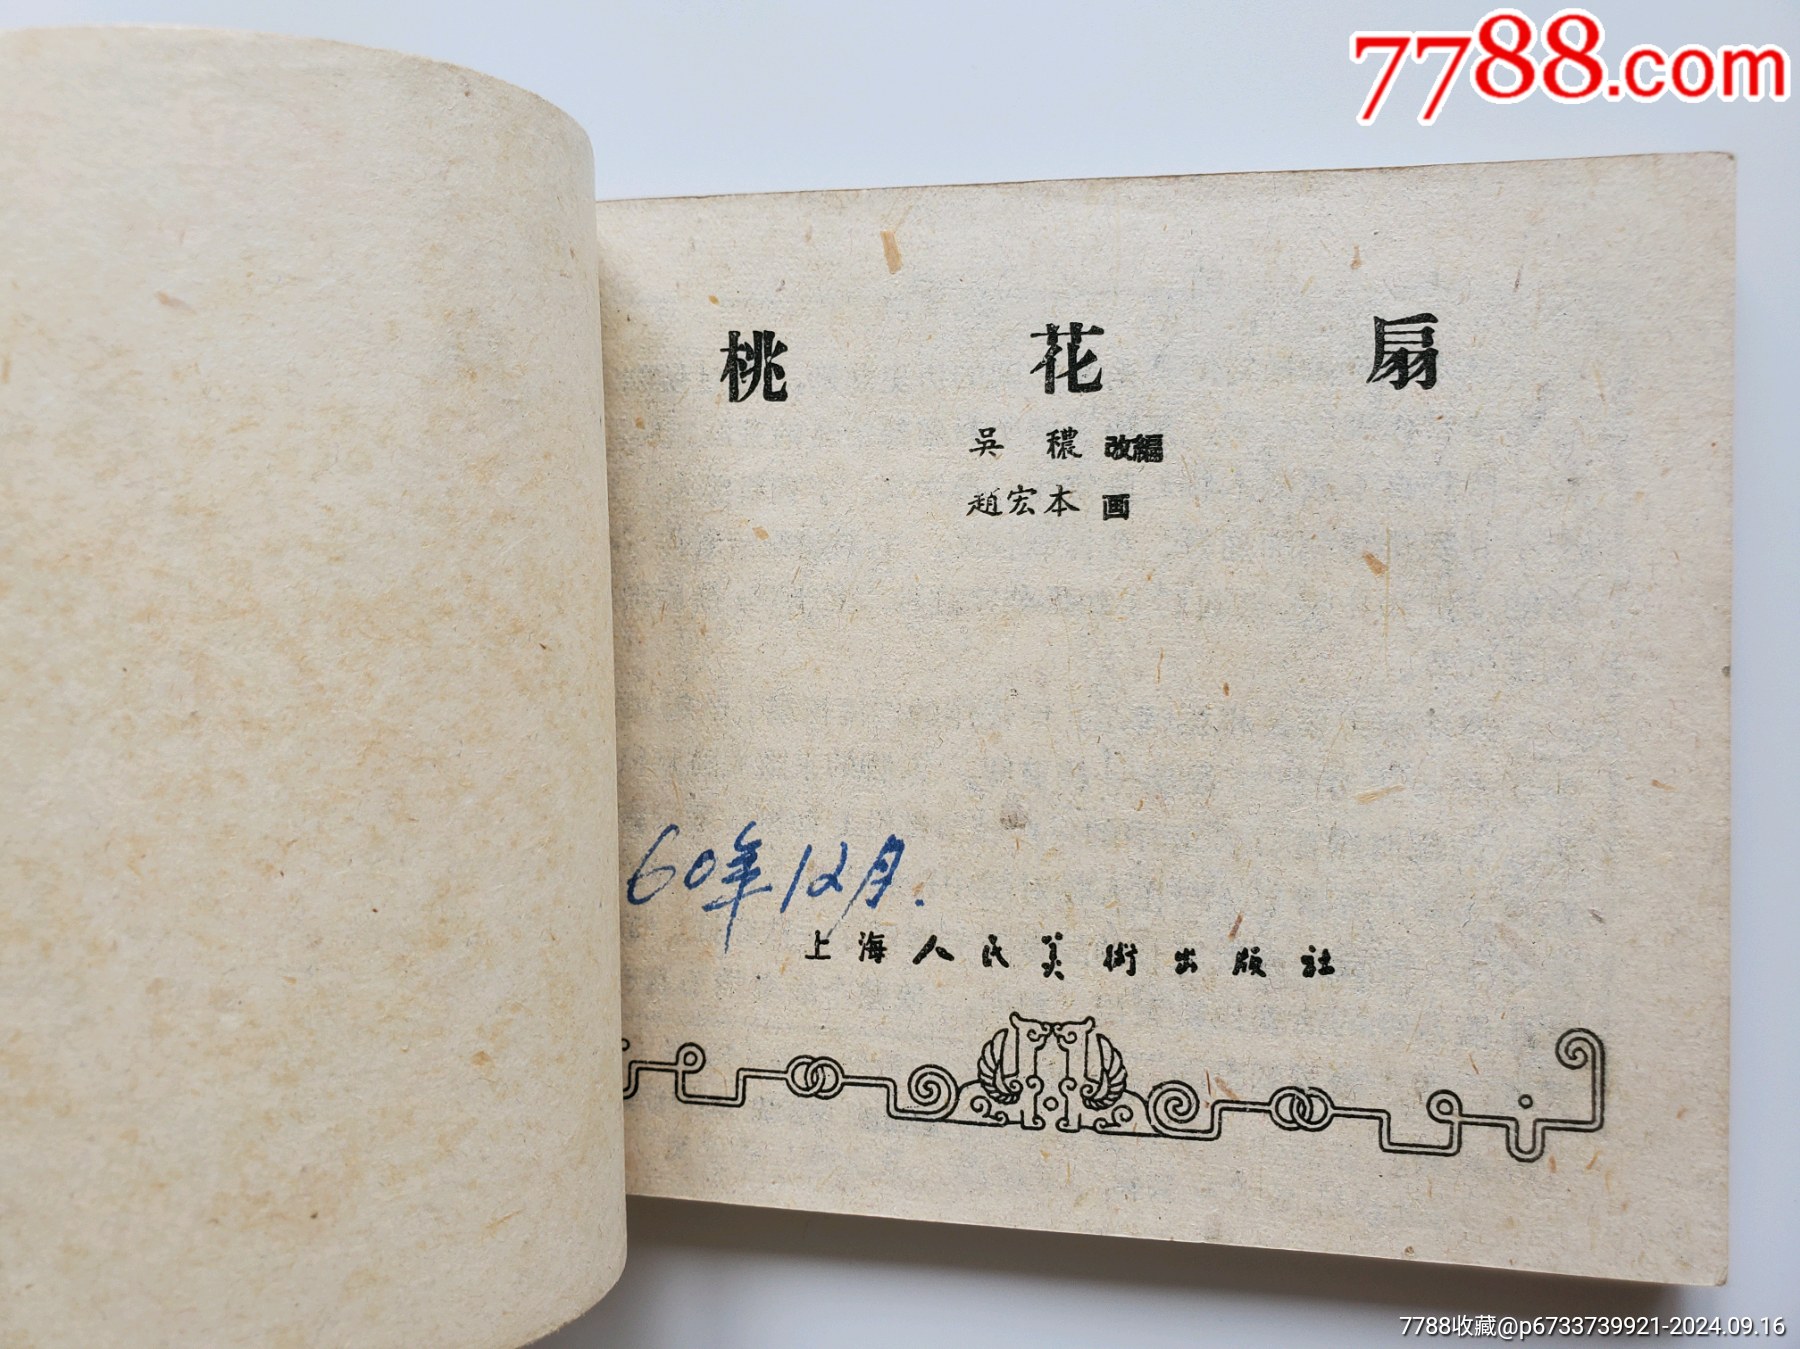 7788.com
桃花扇
吳穠改編
趙宏本画
60年12月.
上海人民美術出版社
7788收藏@p6733739921-2024.09.16